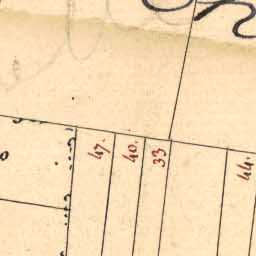 47.
40.
33
44.